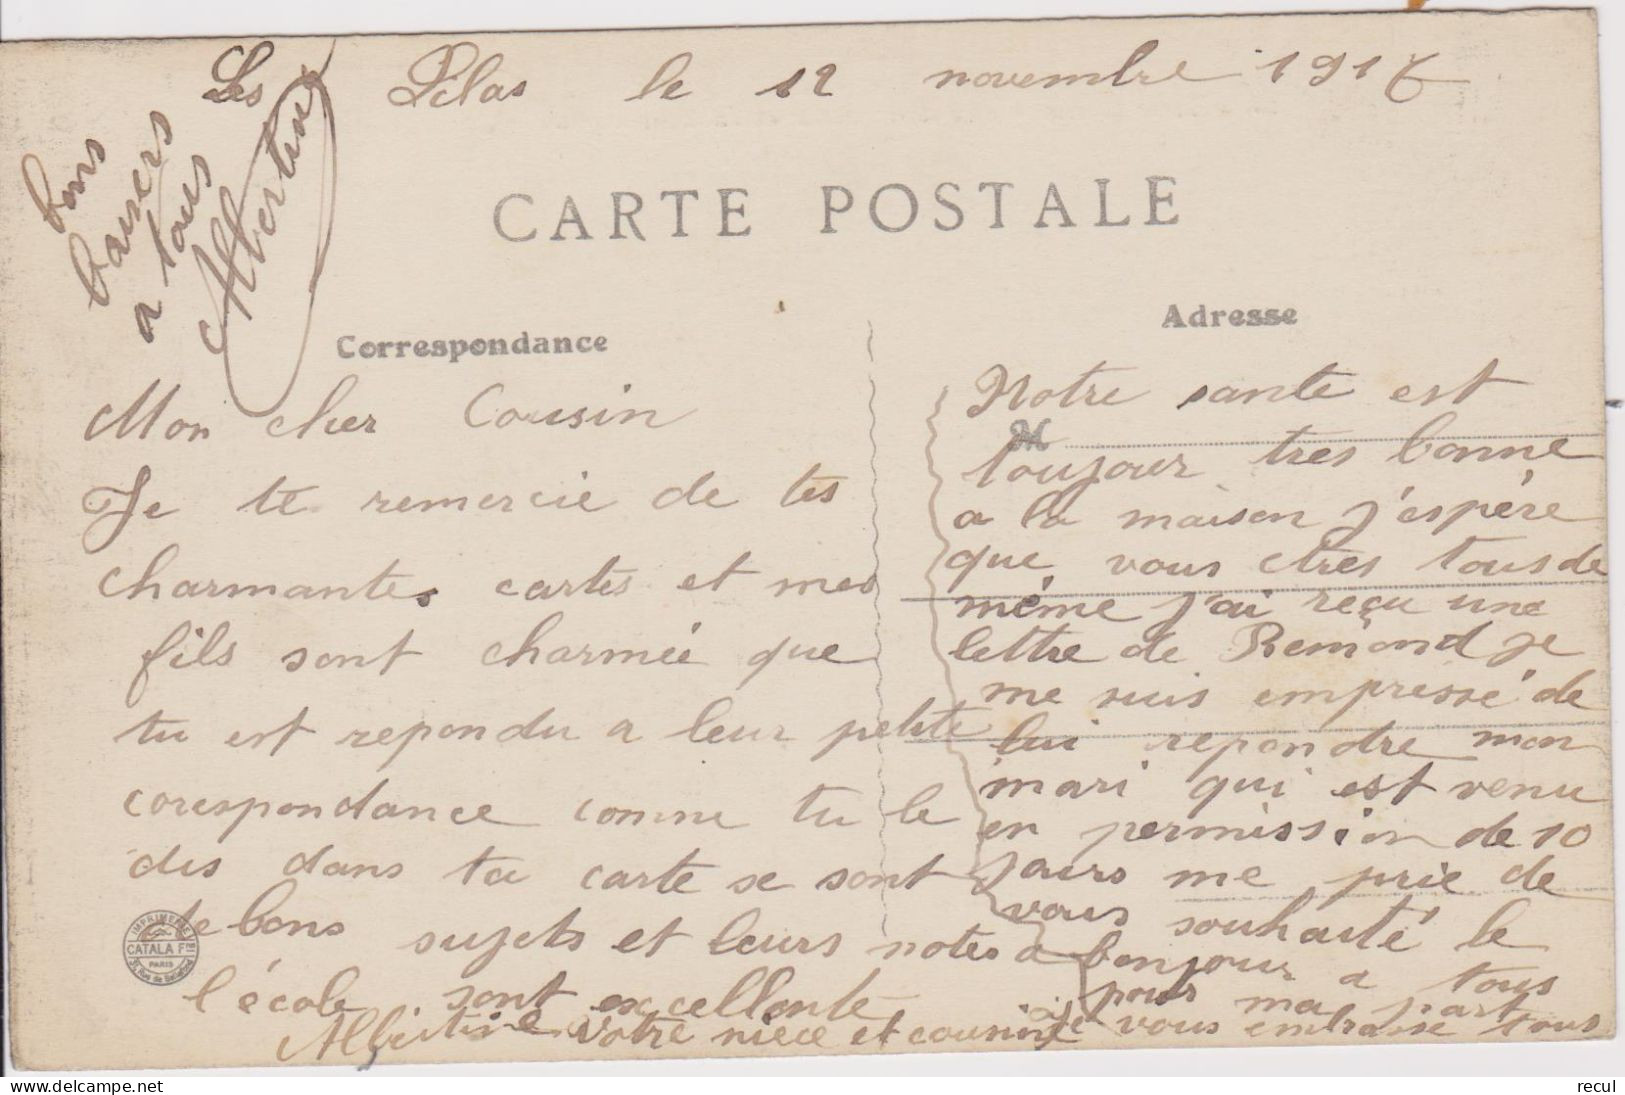 Les Pelas le 12 novembre 1917
bons
baisers
a tous
Albertine
CARTE POSTALE
Correspondance
Mon cher Cousin
Je te remercie de tes
charmantes cartes et mes
fils sont charmée que
tu est repondu a leur petite
corespondance comme tu le
dis dans ta carte se sont
de bons sujets et leurs notes a
l'école sont excellente
Adresse
M
Notre sante est
toujour tres bonne
a la maison j'espére
que vous etres tous de
même j'ai reçu une
lettre de Remond je
me suis empressé de
lui repondre mon
mari qui est venu
en permission de 10
jours me prie de
vous souhaité le
bonjour a tous
pour ma part
je vous embrasse tous
Albertine votre niece et cousine
IMPRIMERIE
CATALA F<sup>res</sup>
PARIS
recul